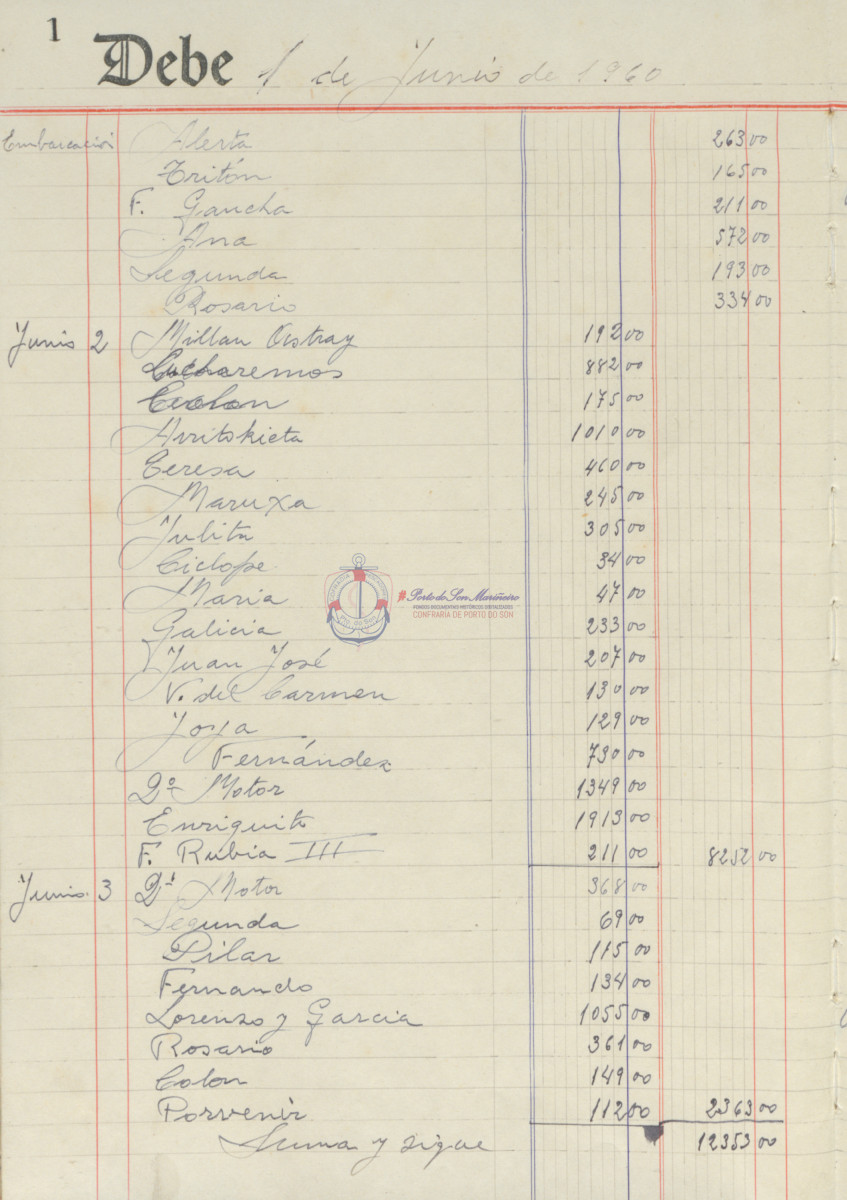 1
Debe 1 de Junio de 1960
Embarcación Alerta 263 00
Tritón 165 00
F. Gaucha 211 00
Ana 572 00
Segunda 193 00
Rosario 334 00
Junio 2 Millan Astray 192 00
Lucharemos 882 00
Colon 175 00
Arritokieta 1010 00
Teresa 460 00
Maruxa 245 00
Julita 305 00
Ciclope 34 00
Maria 47 00
#Porto do Son Mariñeiro
FONDOS DOCUMENTAIS HISTÓRICOS DIXITALIZADOS
CONFRARIA DE PORTO DO SON
Pto. do Son
Galicia 233 00
Juan José 207 00
V. del Carmen 130 00
Joya 129 00
Fernández 730 00
Dº Motor 1349 00
Enriquito 1913 00
F. Rubia III 211 00 8252 00
Junio 3 Dº Motor 368 00
Segunda 69 00
Pilar 115 00
Fernando 134 00
Lorenzo y Garcia 1055 00
Rosario 361 00
Colon 149 00
Porvenir 112 00 2363 00
Suma y sigue 12353 00